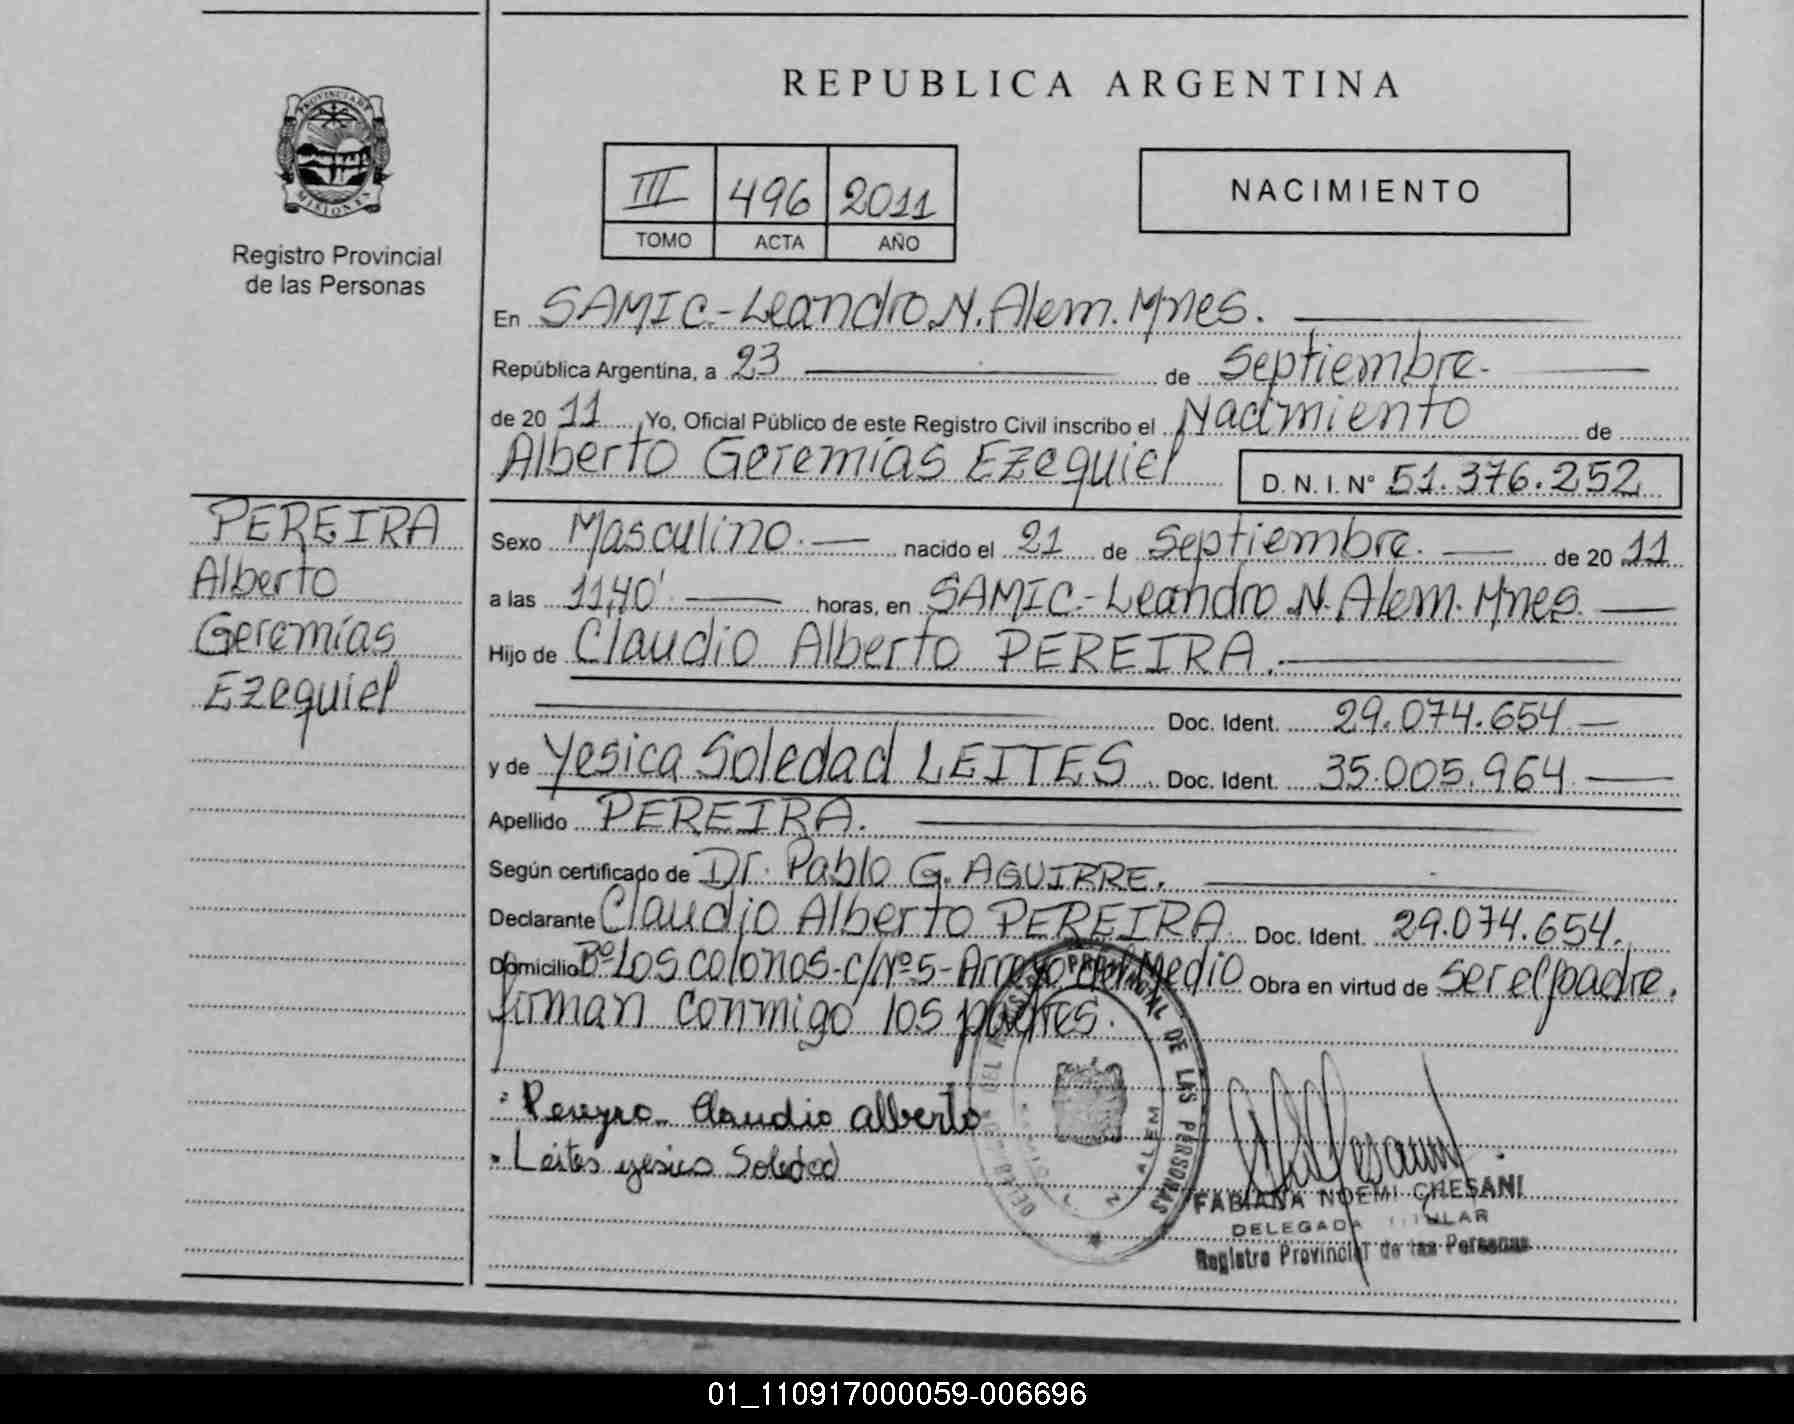 REPUBLICA ARGENTINA
PROVINCIA DE
MISIONES
Registro Provincial
de las Personas
III 496 2011
TOMO ACTA AÑO
NACIMIENTO
En SAMIC.-Leandro N. Alem. Mnes.
República Argentina, a 23 de Septiembre.
de 20 11 Yo, Oficial Público de este Registro Civil inscribo el Nacimiento de
Alberto Geremías Ezequiel D. N. I. N° 51.376.252
PEREIRA
Alberto
Geremías
Ezequiel
Sexo Masculino. nacido el 21 de Septiembre. de 20 11
a las 11,40' horas, en SAMIC.-Leandro N. Alem. Mnes.
Hijo de Claudio Alberto PEREIRA.
Doc. Ident. 29.074.654
y de Yesica Soledad LEITES Doc. Ident. 35.005.964
Apellido PEREIRA.
Según certificado de Dr. Pablo G. AGUIRRE.
Declarante Claudio Alberto PEREIRA Doc. Ident. 29.074.654.
Domicilio Bº Los colonos-c/Nº5-Arroyo del Medio Obra en virtud de ser el padre.
firman conmigo los padres.
Pereyra Claudio alberto
Leites yesica Soledad
PROVINCIAL DE LAS PERSONAS
N. ALEM
FABIANA NOEMI CHESANI
DELEGADA TITULAR
Registro Provincial de las Personas
01_110917000059-006696